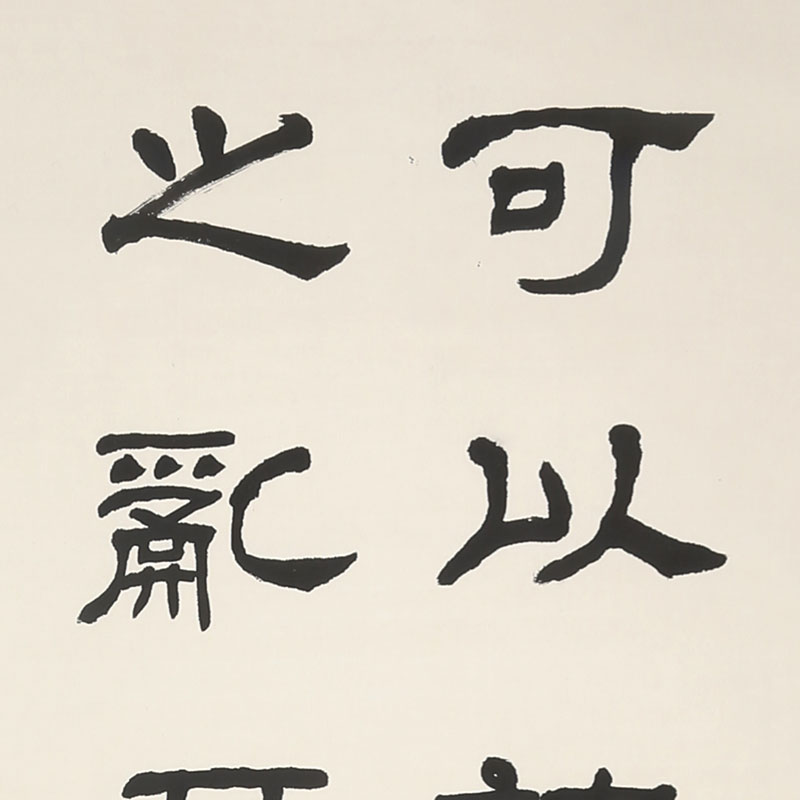 可以
之亂